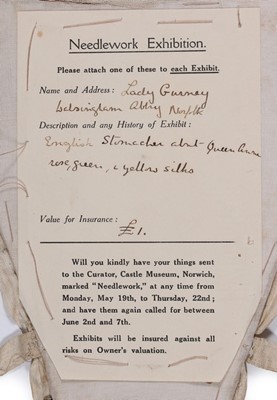 Needlework Exhibition.
Please attach one of these to each Exhibit.
Name and Address : Lady Gurney
Walsingham Abbey Norfolk
Description and any History of Exhibit :
English Stomacher abt Queen Anne
rose, green, & yellow silks
Value for Insurance :
£1.
Will you kindly have your things sent
to the Curator, Castle Museum, Norwich,
marked "Needlework," at any time from
Monday, May 19th, to Thursday, 22nd ;
and have them again called for between
June 2nd and 7th.
Exhibits will be insured against all
risks on Owner's valuation.